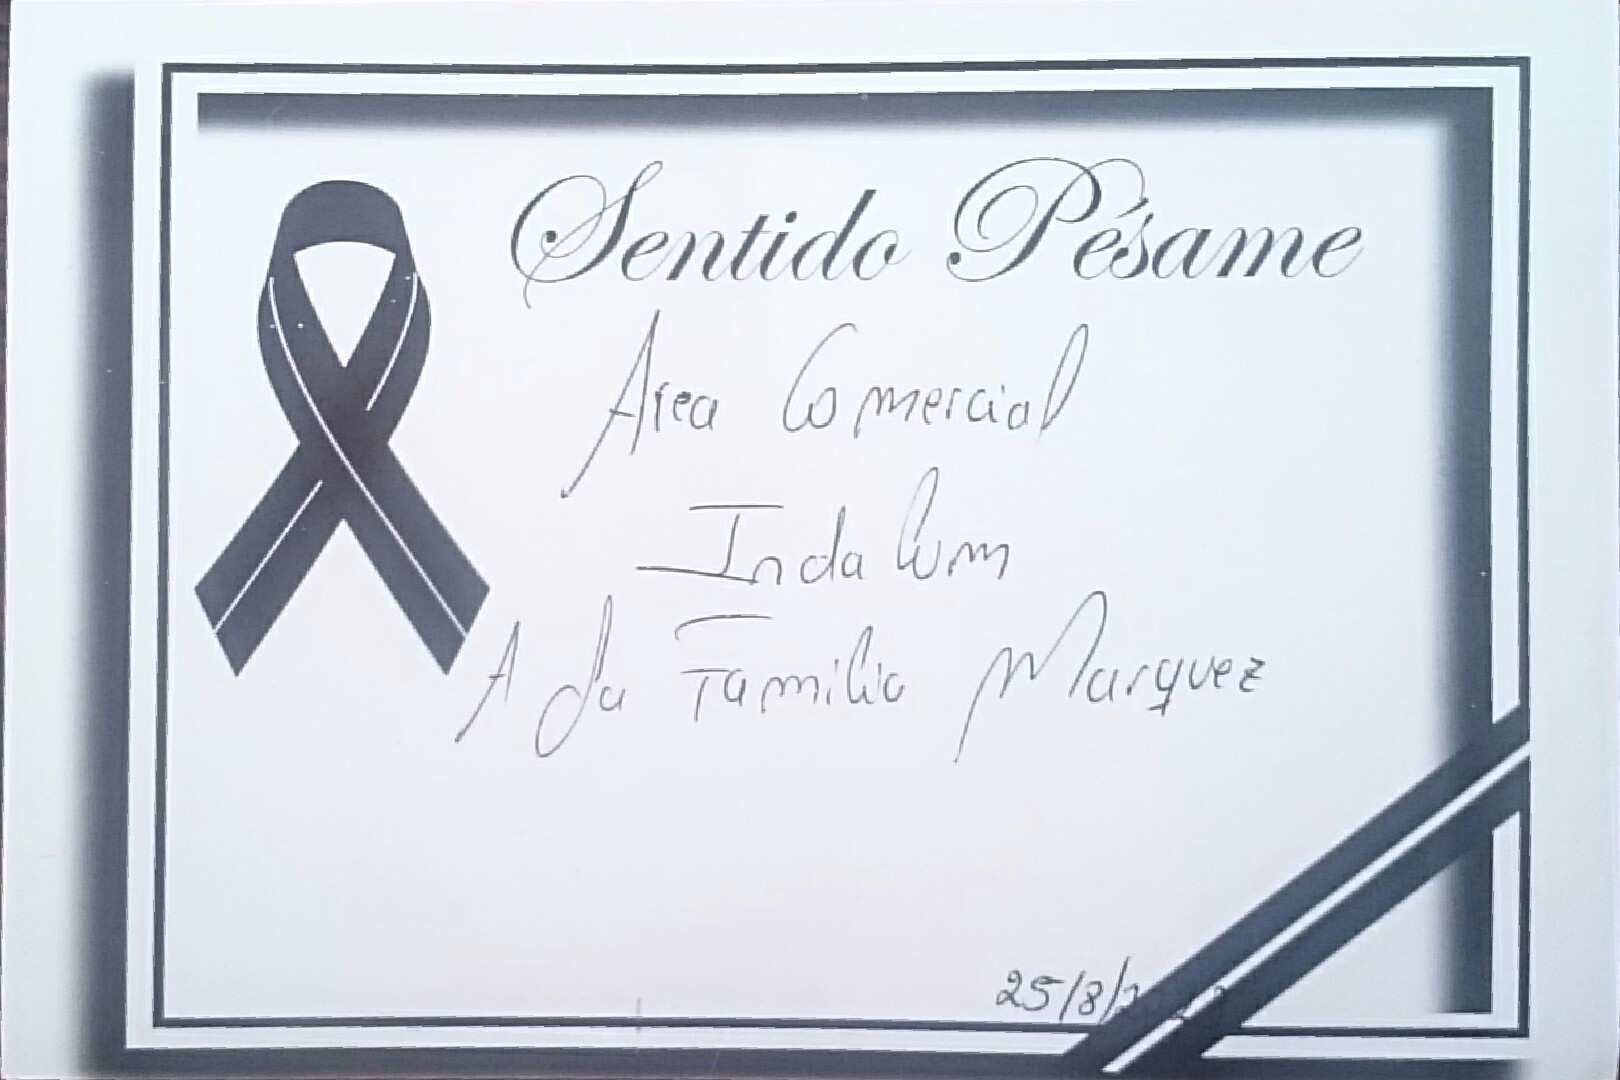 Sentido Pésame
Area Comercial
Inda Cum
A La Familia Marquez
25/8/